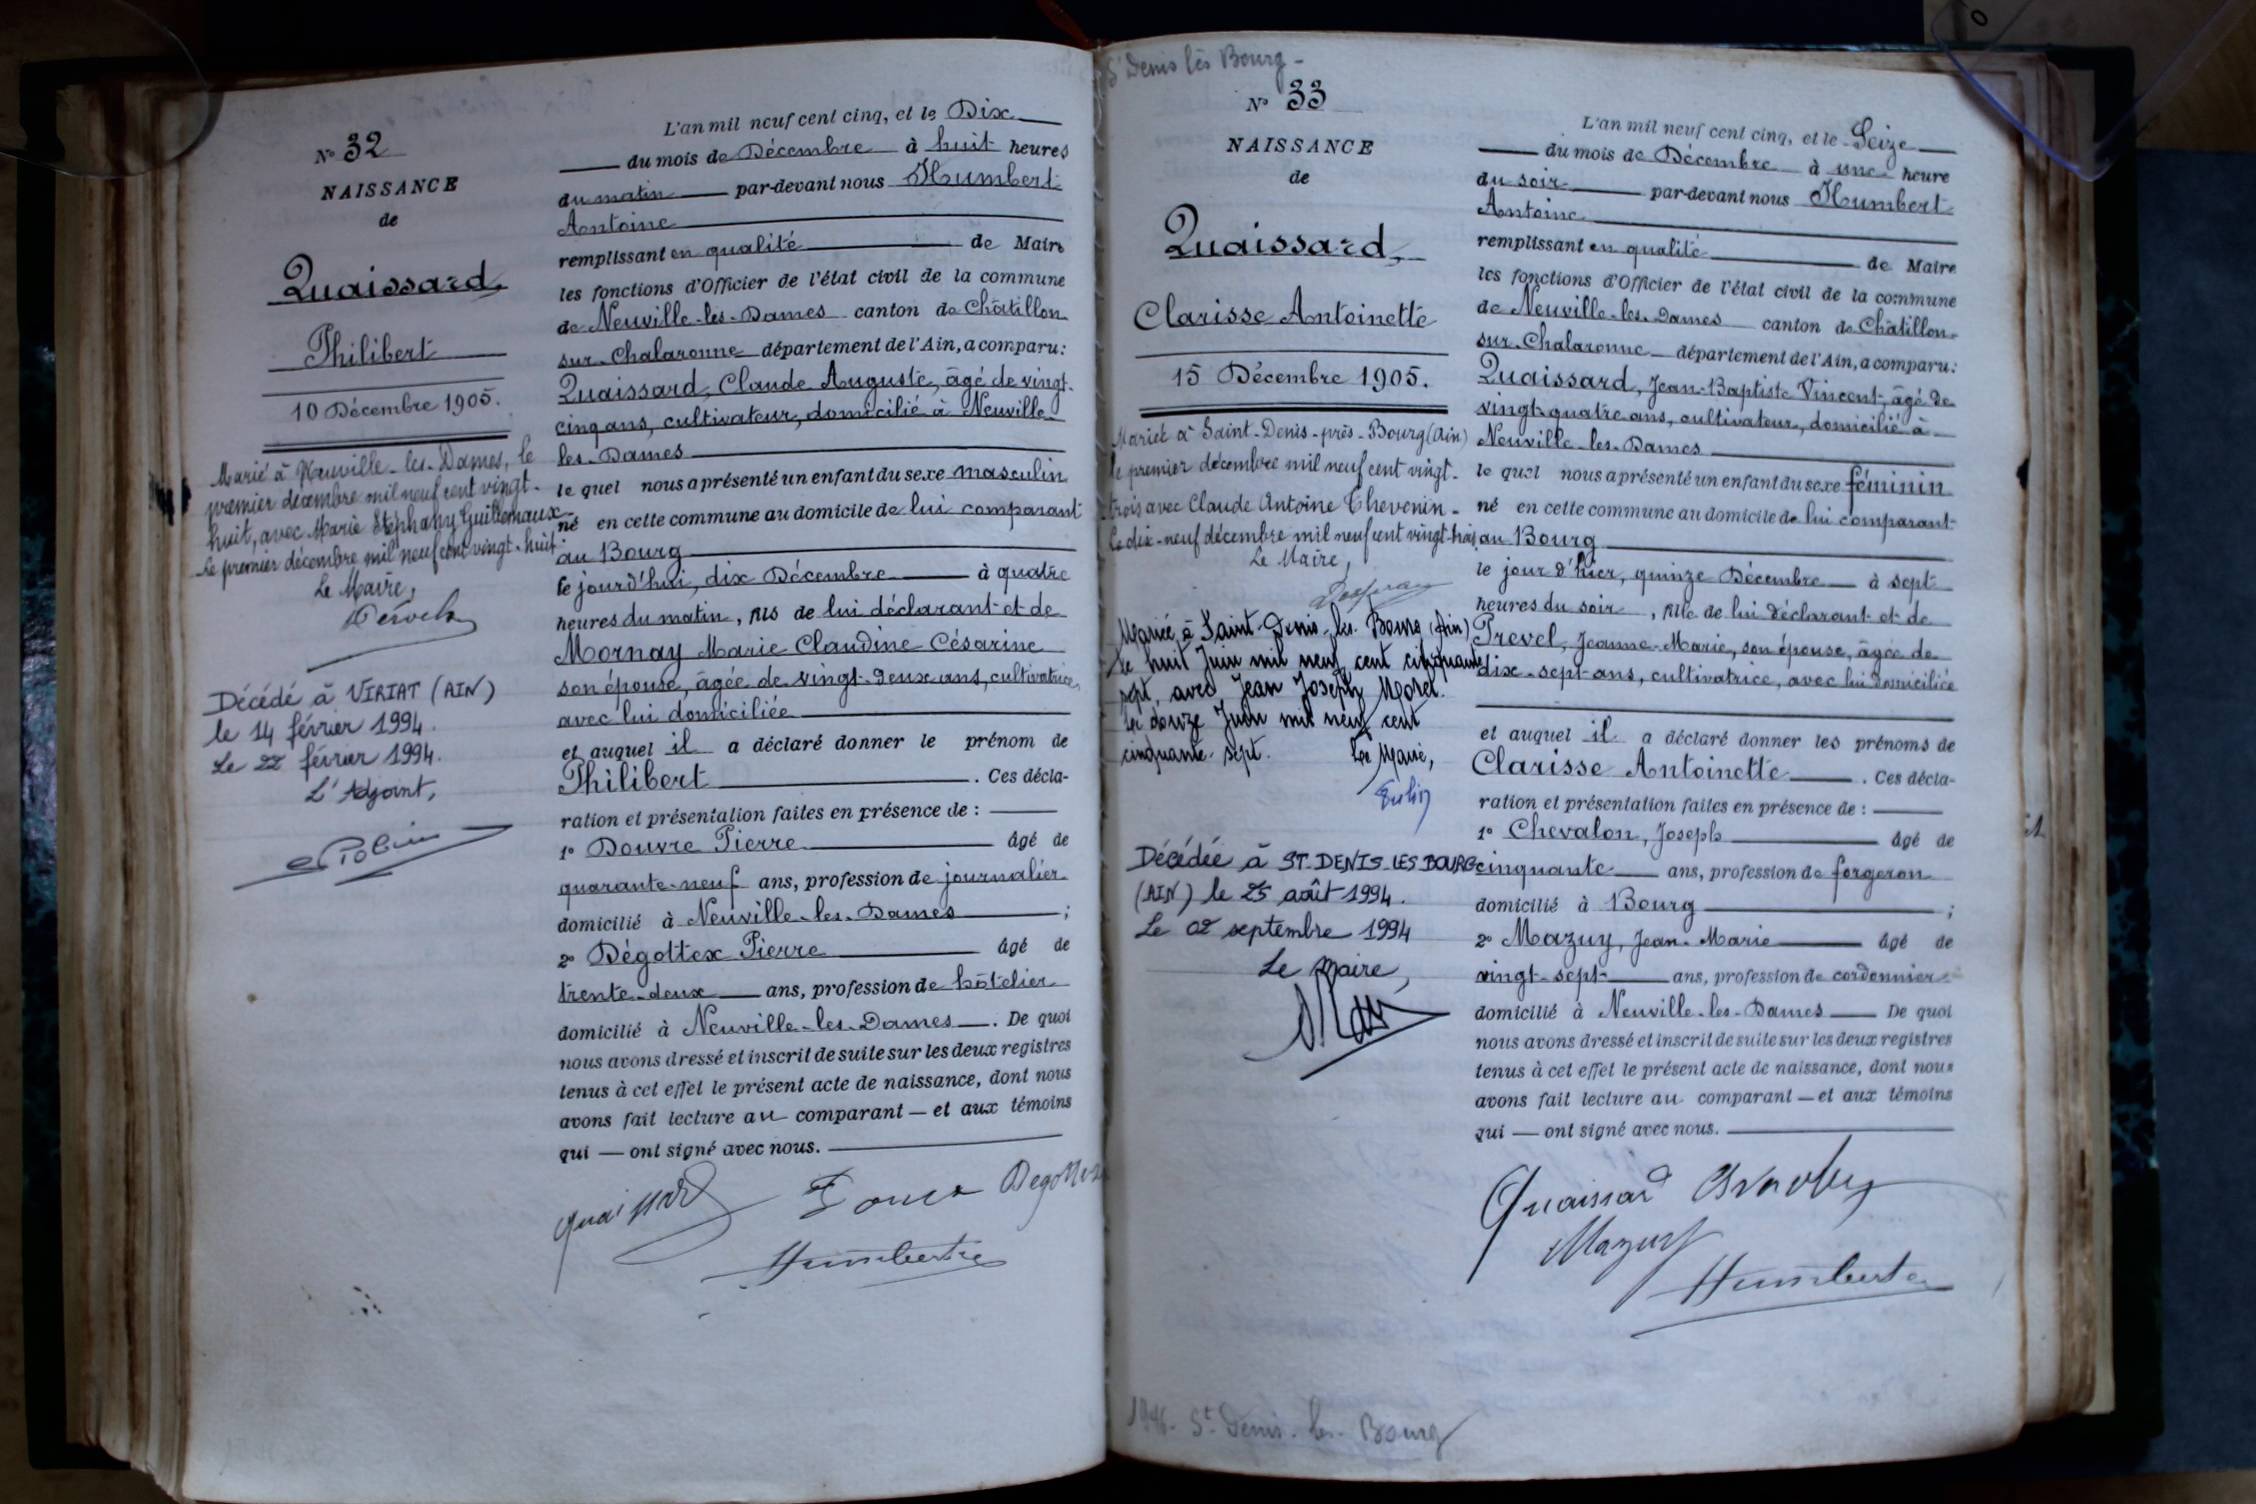 N° 32
NAISSANCE
de
Quaissard
Philibert
10 Décembre 1905.
Marié à Neuville-les-Dames, le
premier décembre mil neuf cent vingt-
huit, avec Marie Stéphany Guillemaux
Le premier décembre mil neuf cent vingt-huit.
Le Maire,
Décédé à VIRIAT (AIN)
le 14 février 1994.
Le 22 février 1994.
L'Adjoint,
L'an mil neuf cent cinq, et le Dix
du mois de Décembre à huit heures
du matin par-devant nous Humbert
Antoine
remplissant en qualité de Maire
les fonctions d'Officier de l'état civil de la commune
de Neuville-les-Dames canton de Châtillon
sur-Chalaronne département de l'Ain, a comparu:
Quaissard, Claude Auguste, âgé de vingt-
cinq ans, cultivateur, domicilié à Neuville
les-Dames
le quel nous a présenté un enfant du sexe masculin
né en cette commune au domicile de lui comparant
au Bourg
le jourd'hui, dix Décembre à quatre
heures du matin, fils de lui déclarant et de
Mornay Marie Claudine Césarine
son épouse, âgée de vingt-deux ans, cultivatrice,
avec lui domiciliée
et auquel il a déclaré donner le prénom de
Philibert. Ces décla-
ration et présentation faites en présence de :
1° Douvre Pierre âgé de
quarante-neuf ans, profession de journalier
domicilié à Neuville-les-Dames ;
2° Dégottex Pierre âgé de
trente-deux ans, profession de hôtelier
domicilié à Neuville-les-Dames. De quoi
nous avons dressé et inscrit de suite sur les deux registres
tenus à cet effet le présent acte de naissance, dont nous
avons fait lecture au comparant — et aux témoins
qui — ont signé avec nous.
Quaissard Degottex
Humbert
St Denis lès Bourg-
N° 33
NAISSANCE
de
Quaissard,
Clarisse Antoinette
15 Décembre 1905.
Mariée à Saint-Denis-près-Bourg (Ain)
le premier décembre mil neuf cent vingt-
trois avec Claude Antoine Thevenin.
Le dix-neuf décembre mil neuf cent vingt-trois
Le Maire,
Mariée à Saint-Denis-les-Bourg (Ain)
le huit Juin mil neuf cent cinquante
sept, avec Jean Joseph Morel.
Le douze Juin mil neuf cent
cinquante-sept. Le Maire,
Décédée à ST-DENIS-LES-BOURG
(AIN) le 25 août 1994.
Le 02 septembre 1994
Le Maire,
L'an mil neuf cent cinq, et le Seize
du mois de Décembre à une heure
du soir par-devant nous Humbert
Antoine
remplissant en qualité de Maire
les fonctions d'Officier de l'état civil de la commune
de Neuville-les-Dames canton de Châtillon-
sur-Chalaronne département de l'Ain, a comparu:
Quaissard, Jean-Baptiste Vincent, âgé de
vingt-quatre ans, cultivateur, domicilié à
Neuville-les-Dames
le quel nous a présenté un enfant du sexe féminin
né en cette commune au domicile de lui comparant
au Bourg
le jour d'hier, quinze Décembre à sept
heures du soir, fille de lui déclarant et de
Prevel, Jeanne-Marie, son épouse, âgée de
dix-sept ans, cultivatrice, avec lui domiciliée
et auquel il a déclaré donner les prénoms de
Clarisse Antoinette. Ces décla-
ration et présentation faites en présence de :
1° Chevalon, Joseph âgé de
cinquante ans, profession de forgeron
domicilié à Bourg ;
2° Mazuy, Jean-Marie âgé de
vingt-sept ans, profession de cordonnier
domicilié à Neuville-les-Dames De quoi
nous avons dressé et inscrit de suite sur les deux registres
tenus à cet effet le présent acte de naissance, dont nous
avons fait lecture au comparant — et aux témoins
qui — ont signé avec nous.
Quaissard
Mazuy
Humbert
St Denis-les-Bourg